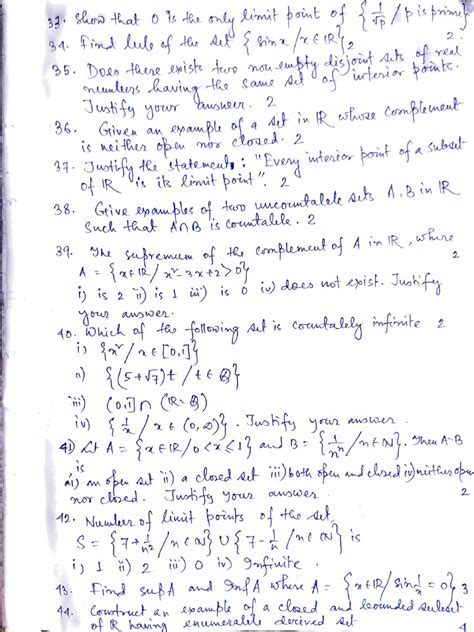 33. Show that 0 is the only limit point of { 1/√p / p is prime}
34. Find lub of the set { sin x / x ∈ IR} 2
35. Does there exists two non empty disjoint sets of real
numbers having the same set of interior points.
Justify your answer. 2
36. Given an example of a set in IR whose complement
is neither open nor closed. 2
37. Justify the statement: "Every interior point of a subset
of IR is its limit point". 2
38. Give examples of two uncountable sets A, B in IR
such that A∩B is countable. 2
39. The supremum of the complement of A in IR, where
A = {x ∈ IR / x²-3x+2>0} 2
i) is 2 ii) is 1 iii) is 0 iv) does not exist. Justify
your answer.
40. Which of the following set is countably infinite 2
i) {x² / x ∈ [0,1]}
ii) {(5+√7)t / t ∈ Q}
iii) (0,1] ∩ (IR-Q)
iv) {1/x / x ∈ (0,∞)}. Justify your answer.
41) Let A = {x ∈ IR / 0<x≤1} and B = {1/nⁿ / n ∈ IN}. Then A-B
is
i) an open set ii) a closed set iii) both open and closed iv) neither open
nor closed. Justify your answer 2
42. Number of limit points of the set
S = {7+1/n² / n ∈ IN} ∪ {7-1/n / n ∈ IN} is
i) 1 ii) 2 iii) 0 iv) Infinite.
43. Find sup A and Inf A where A = {x ∈ IR / sin 1/x = 0} 3
44. Construct an example of a closed and bounded subset
of IR having enumerable derived set 4